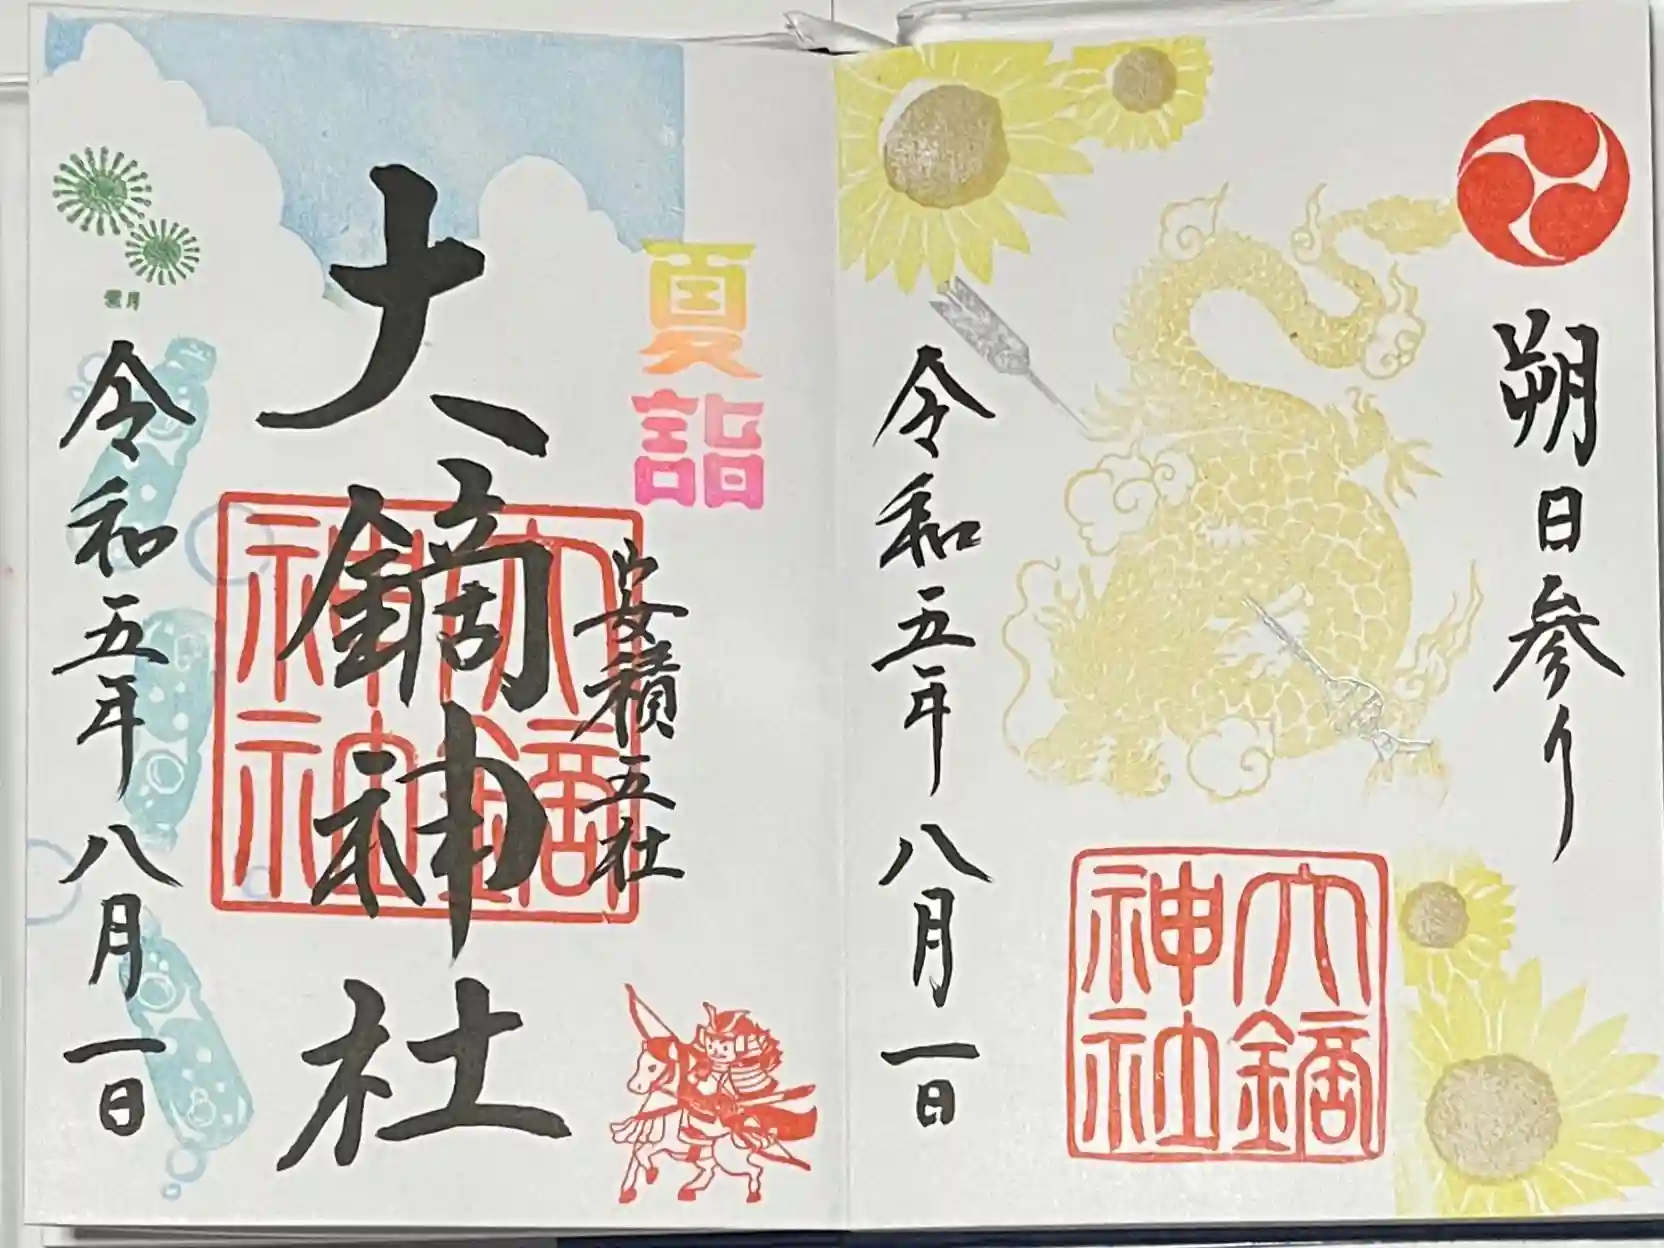 朔日参り
大鏑
神社
令和五年 八月一日
夏詣
安積五社
大鏑神社
大鏑
神社
令和五年 八月一日